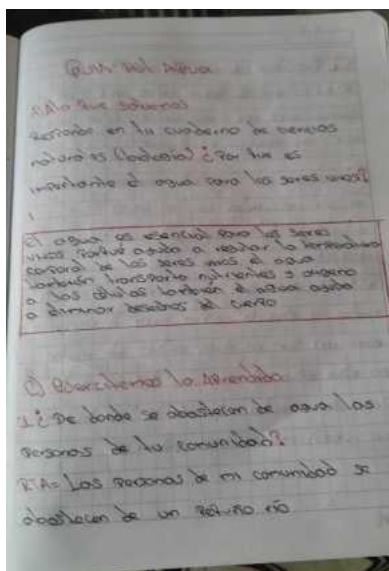 Guia del Agua
A) Lo que sabemos
Responde en tu cuaderno de ciencias
naturales (biología) ¿Por que es
importante el agua para los seres vivos?
El agua es esencial para los seres
vivos porque ayuda a regular la temperatura
corporal de los seres vivos el agua
tambien transporta nutrientes y oxigeno
a las celulas tambien el agua ayuda
a eliminar desechos el cuerpo
C) Ejercitemos lo aprendido
1 ¿De donde se abastecen de agua las
personas de tu comunidad?
RTA= Las personas de mi comunidad se
abastecen de un pequeño rio